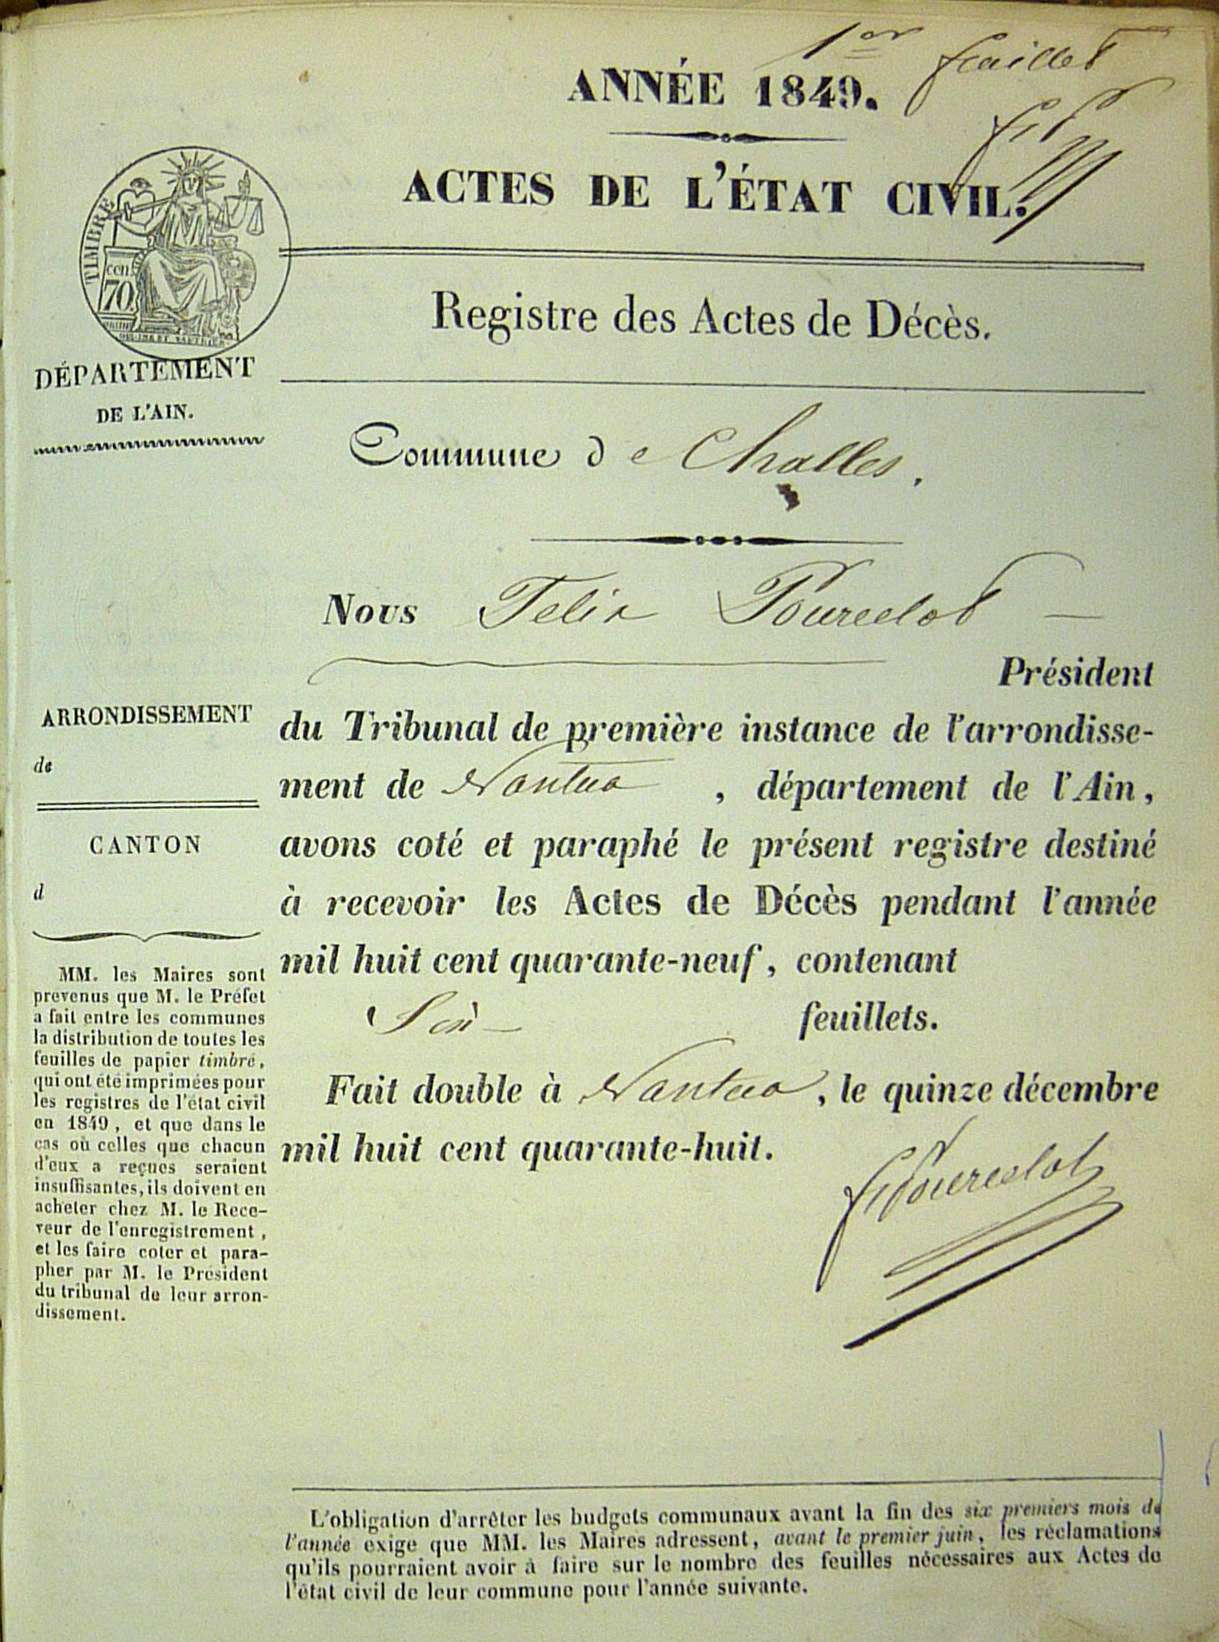 1er feuillet
ANNÉE 1849.
ACTES DE L'ÉTAT CIVIL.
TIMBRE
cen.
70
Registre des Actes de Décès.
DÉPARTEMENT
DE L'AIN.
Commune de Challes.
Nous Felix Pourcelot
Président
du Tribunal de première instance de l'arrondisse-
ment de Nantua, département de l'Ain,
avons coté et paraphé le présent registre destiné
à recevoir les Actes de Décès pendant l'année
mil huit cent quarante-neuf, contenant
Six feuillets.
Fait double à Nantua, le quinze décembre
mil huit cent quarante-huit.
fx Pourcelot
ARRONDISSEMENT
de
CANTON
d
MM. les Maires sont
prévenus que M. le Préfet
a fait entre les communes
la distribution de toutes les
feuilles de papier timbré,
qui ont été imprimées pour
les registres de l'état civil
en 1849, et que dans le
cas où celles que chacun
d'eux a reçues seraient
insuffisantes, ils doivent en
acheter chez M. le Rece-
veur de l'enregistrement,
et les faire coter et para-
pher par M. le Président
du tribunal de leur arron-
dissement.
L'obligation d'arrêter les budgets communaux avant la fin des six premiers mois de
l'année exige que MM. les Maires adressent, avant le premier juin, les réclamations
qu'ils pourraient avoir à faire sur le nombre des feuilles nécessaires aux Actes de
l'état civil de leur commune pour l'année suivante.